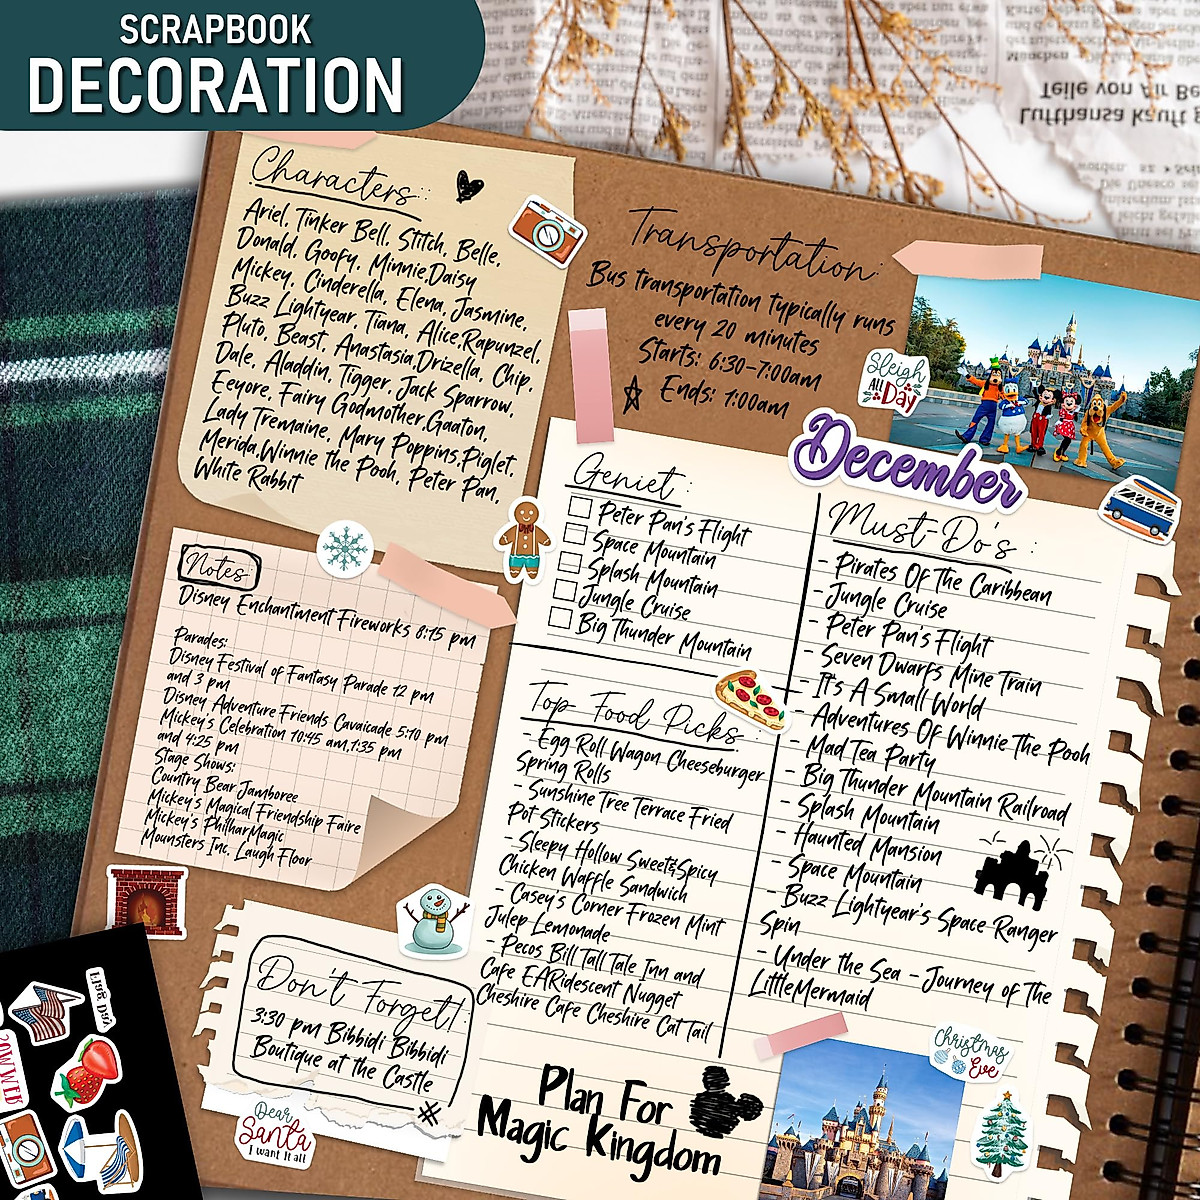 SCRAPBOOK
DECORATION
Teile von Air Be
Lufthansa kauft g
Characters:
Ariel, Tinker Bell, Stitch, Belle,
Donald, Goofy, Minnie,Daisy
Mickey, Cinderella, Elena, Jasmine,
Buzz Lightyear, Tiana, Alice,Rapunzel,
Pluto, Beast, Anastasia,Drizella, Chip,
Dale, Aladdin, Tigger, Jack Sparrow,
Eeyore, Fairy Godmother,Gaaton,
Lady Tremaine, Mary Poppins,Piglet,
Merida,Winnie the Pooh, Peter Pan,
White Rabbit
Transportation:
Bus transportation typically runs
every 20 minutes
Starts: 6:30-7:00am
Ends: 1:00am
Sleigh
ALL
Day
December
Notes
Disney Enchantment Fireworks 8:15 pm
Parades:
Disney Festival of Fantasy Parade 12 pm
and 3 pm
Disney Adventure Friends Cavaicade 5:10 pm
Mickey's Celebration 10:45 am,1:35 pm
and 4:25 pm
Stage Shows:
Country Bear Jamboree
Mickey's Magical Friendship Faire
Mickey's PhilharMagic
Mounsters Inc, Laugh Floor
Geniet:
Peter Pan's Flight
Space Mountain
Splash Mountain
Jungle Cruise
Big Thunder Mountain
Top Food Picks
- Egg Roll Wagon Cheeseburger
Spring Rolls
- Sunshine Tree Terrace Fried
Pot Stickers
- Sleepy Hollow Sweet&Spicy
Chicken Waffle Sandwich
- Casey's Corner Frozen Mint
Julep Lemonade
- Pecos Bill Tall Tale Inn and
Cafe EARidescent Nugget
Cheshire Cafe Cheshire Cat Tail
Must-Do's :
- Pirates Of The Caribbean
- Jungle Cruise
- Peter Pan's Flight
- Seven Dwarfs Mine Train
- It's A Small World
- Adventures Of Winnie The Pooh
- Mad Tea Party
- Big Thunder Mountain Railroad
- Splash Mountain
- Haunted Mansion
- Space Mountain
- Buzz Lightyear's Space Ranger
Spin
- Under the Sea - Journey of The
LittleMermaid
Don't Forget!
3:30 pm Bibbidi Bibbidi
Boutique at the Castle
#
Dear
Santa
I want it all
Plan For
Magic Kingdom
Christmas
Eve